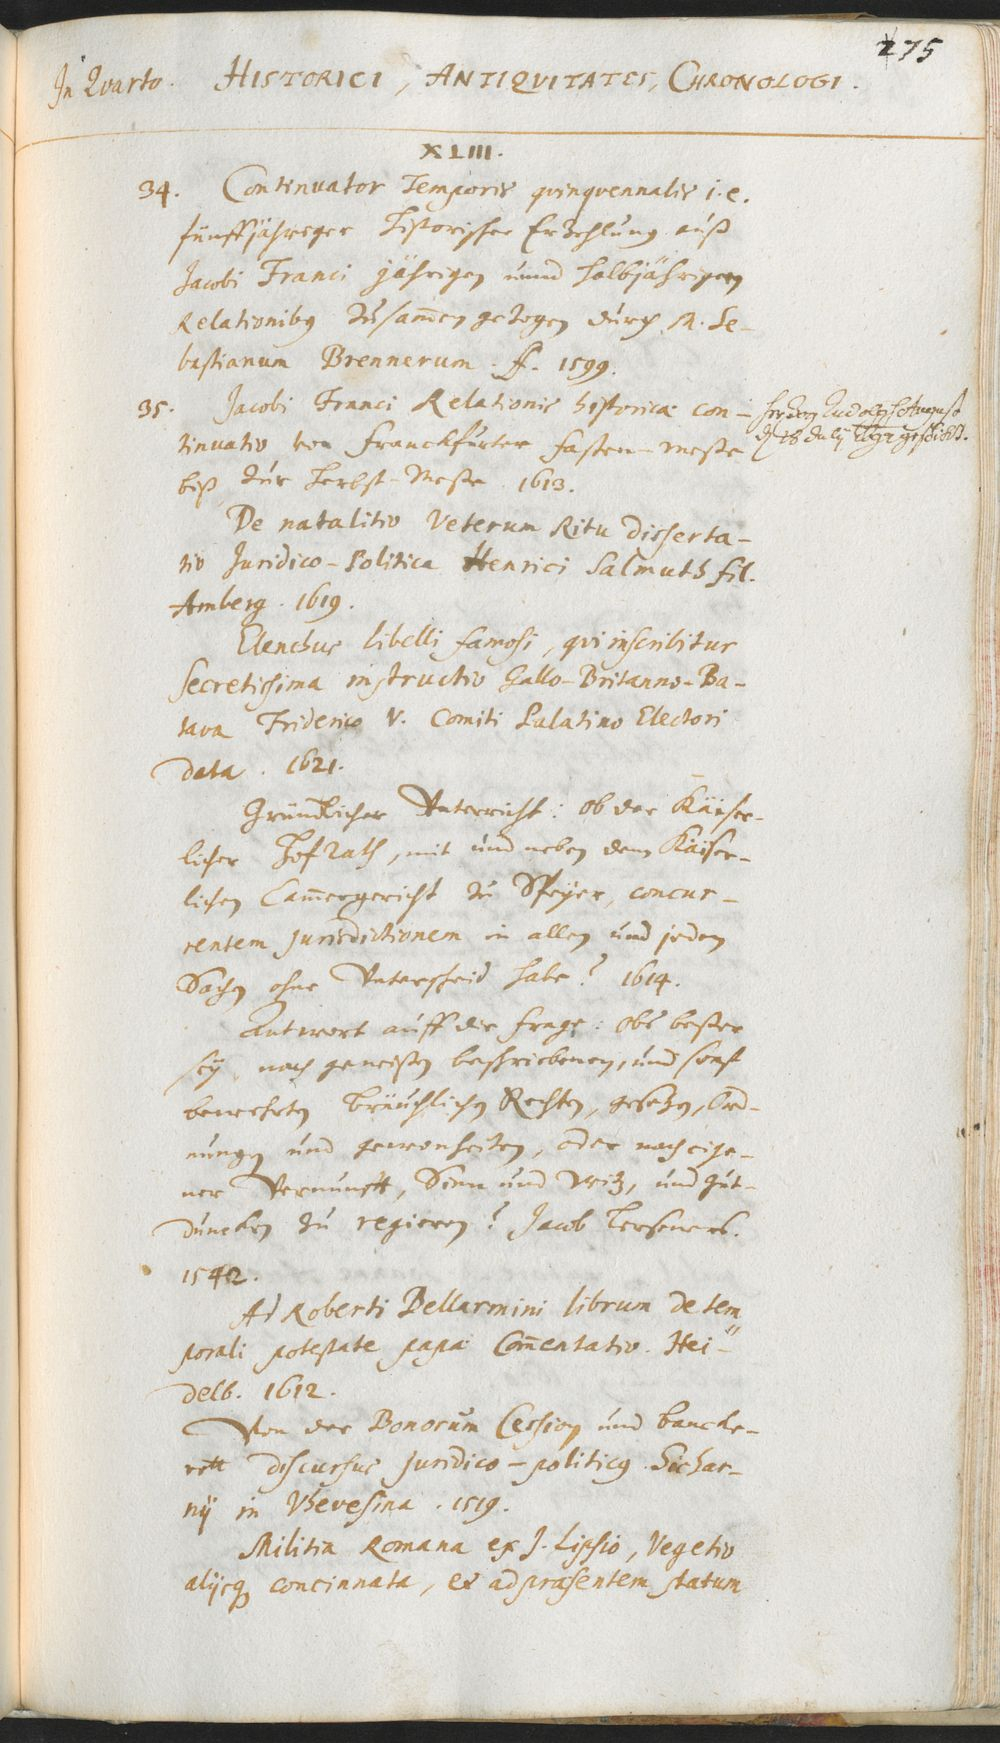 275
In Quarto. HISTORICI, ANTIQVITATES, CHRONOLOGI.
XLIII.
34. Continuator Temporis quinquennalis i.e.
fünffjähriger Historischer Erzehlung auß
Jacobi Franci jährigen unnd halbjährigen
Relationibus zusam̃en gezogen durch M. Se-
bastianum Brennerum. f. 1599.
35. Jacobi Franci Relationis historicæ con-
tinuatio von Franckfurter fasten-messe
biß zur Herbst-Messe 1613.
Herzog Rudolph August
d 18 Julij geschickt.
De natalitio Veterum Ritu disserta-
tio Juridico-Politica Henrici Salmuth fil.
Amberg. 1619.
Elenchus libelli famosi, qui inscribitur
Secretissima instructio Gallo-Britanno-Ba-
tava Friderico V. Comiti Palatino Electori
data. 1621.
Gründlicher Unterricht: ob der Käiser-
licher Hofrath, mit und neben dem Käiser-
lichen Cam̃ergericht zu Speÿer, concur-
rentem jurisdictionem in allen und jeden
Sachen ohne Unterscheid habe? 1614.
Antwort auff die frage: Obs besser
seÿ, nach gewissen beschriebenen, und sonst
bewehrten bräuchlichen Rechten, gesetzen, Ord-
nungen und gewonheiten, oder nach eige-
ner Vernunfft, Sinn und Witz, und gut-
duncken zu regieren? Jacob Lersener.
1542.
Ad Roberti Bellarmini librum de tem
porali potestate papæ Com̃entatio. Hei-
delb. 1612.
Von der Bonorum Cession und bancke-
rott discursus juridico-politicus.
in 1519.
Militia Romana ex J. Lipsio, Vegetio
alijsq concinnata, et ad præsentem statum